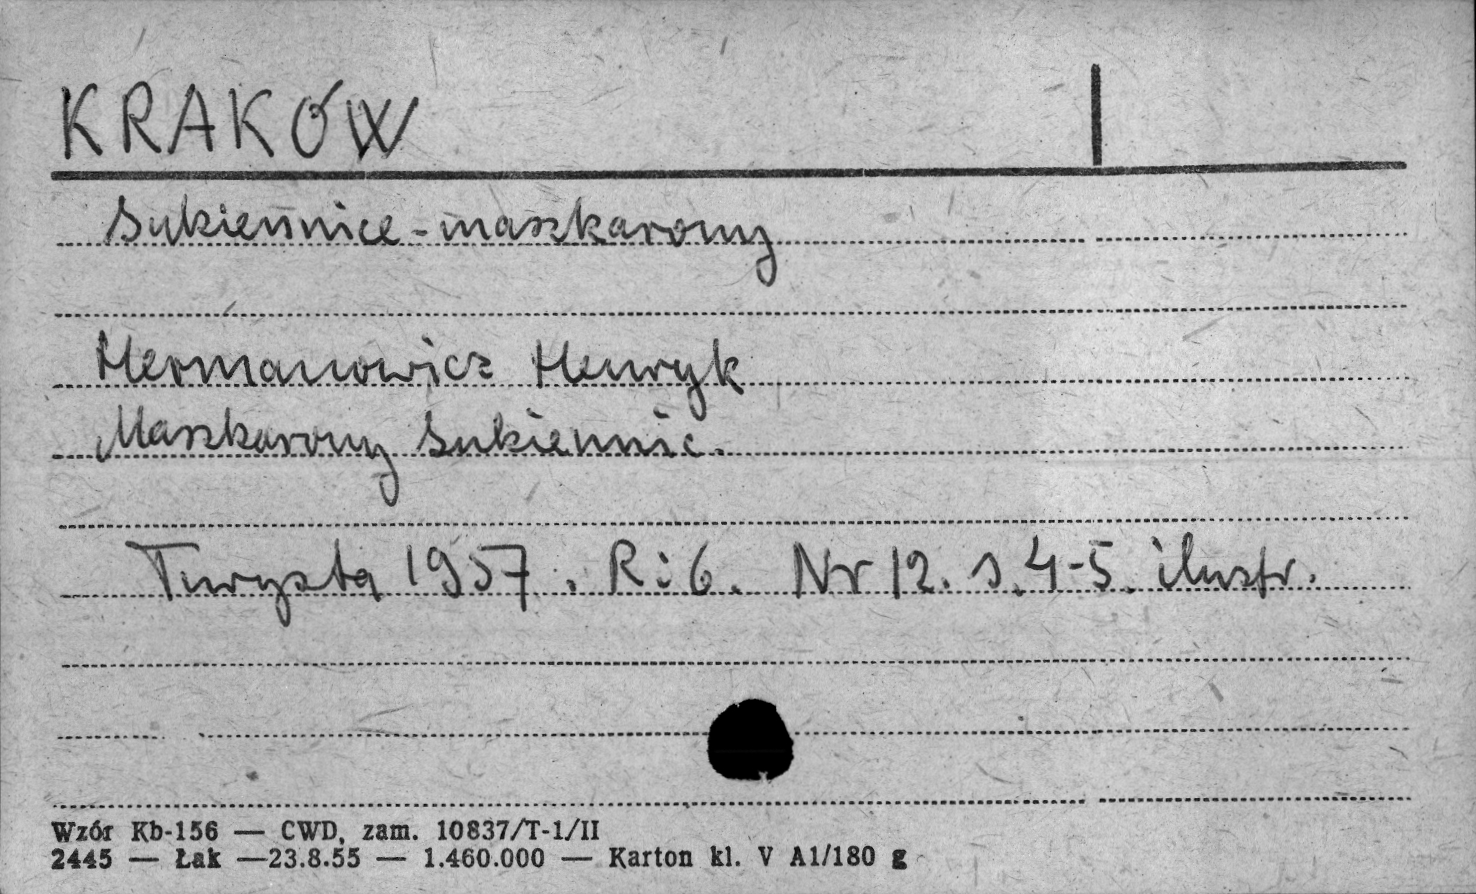 KRAKÓW
Sukiennice - maszkarony
Hermanowicz Henryk
Maszkarony Sukiennic.
Turysta 1957. R: 6. Nr 12. s. 4-5. ilustr.
Wzór Kb-156 — CWD, zam. 10837/T-1/II
2445 — Łak —23.8.55 — 1.460.000 — Karton kl. V A1/180 g